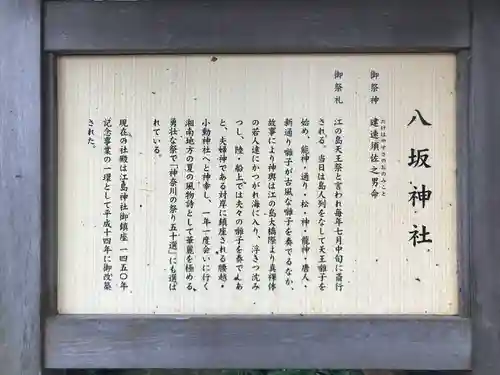 八坂神社
たけはやすさのおのみこと
御祭神 建速須佐之男命
御祭礼 江の島天王祭と言われ毎年七月中旬に斎行
される。当日は島人列をなして天王囃子を
始め、能神・通り・松・神・龍神・唐人
新通り囃子が古風な囃子を奏でるなか、
故事により神輿は江の島大橋際より真裸体
の若人達にかつがれ海に入り、浮きつ沈み
つし、陸・船上では夫々の囃子を奏で、あ
と、夫婦神である対岸に鎮座される腰越・
小動神社へと神幸し、一年一度会いに行く
湘南地方の夏の風物詩として華麗を極める
勇壮な祭で「神奈川の祭り五十選」にも選ば
れている。
現在の社殿は江島神社御鎮座一四五〇年
記念事業の一環として平成十四年に御改築
された。